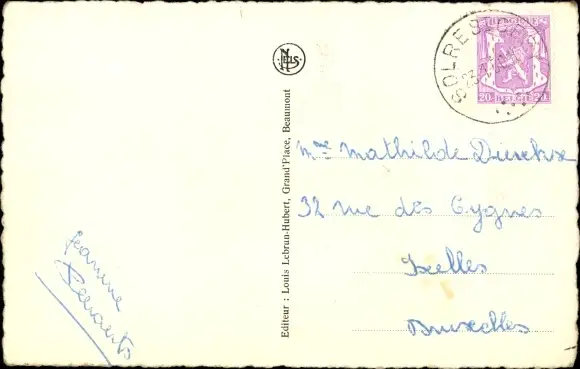 NELS
BELGIQUE
20 BELGIE 20
SOLRE S
23
Mme Mathilde
32 rue des Cygnes
Ixelles
Bruxelles
Editeur : Louis Lebrun-Hubert, Grand'Place, Beaumont
Jeannine